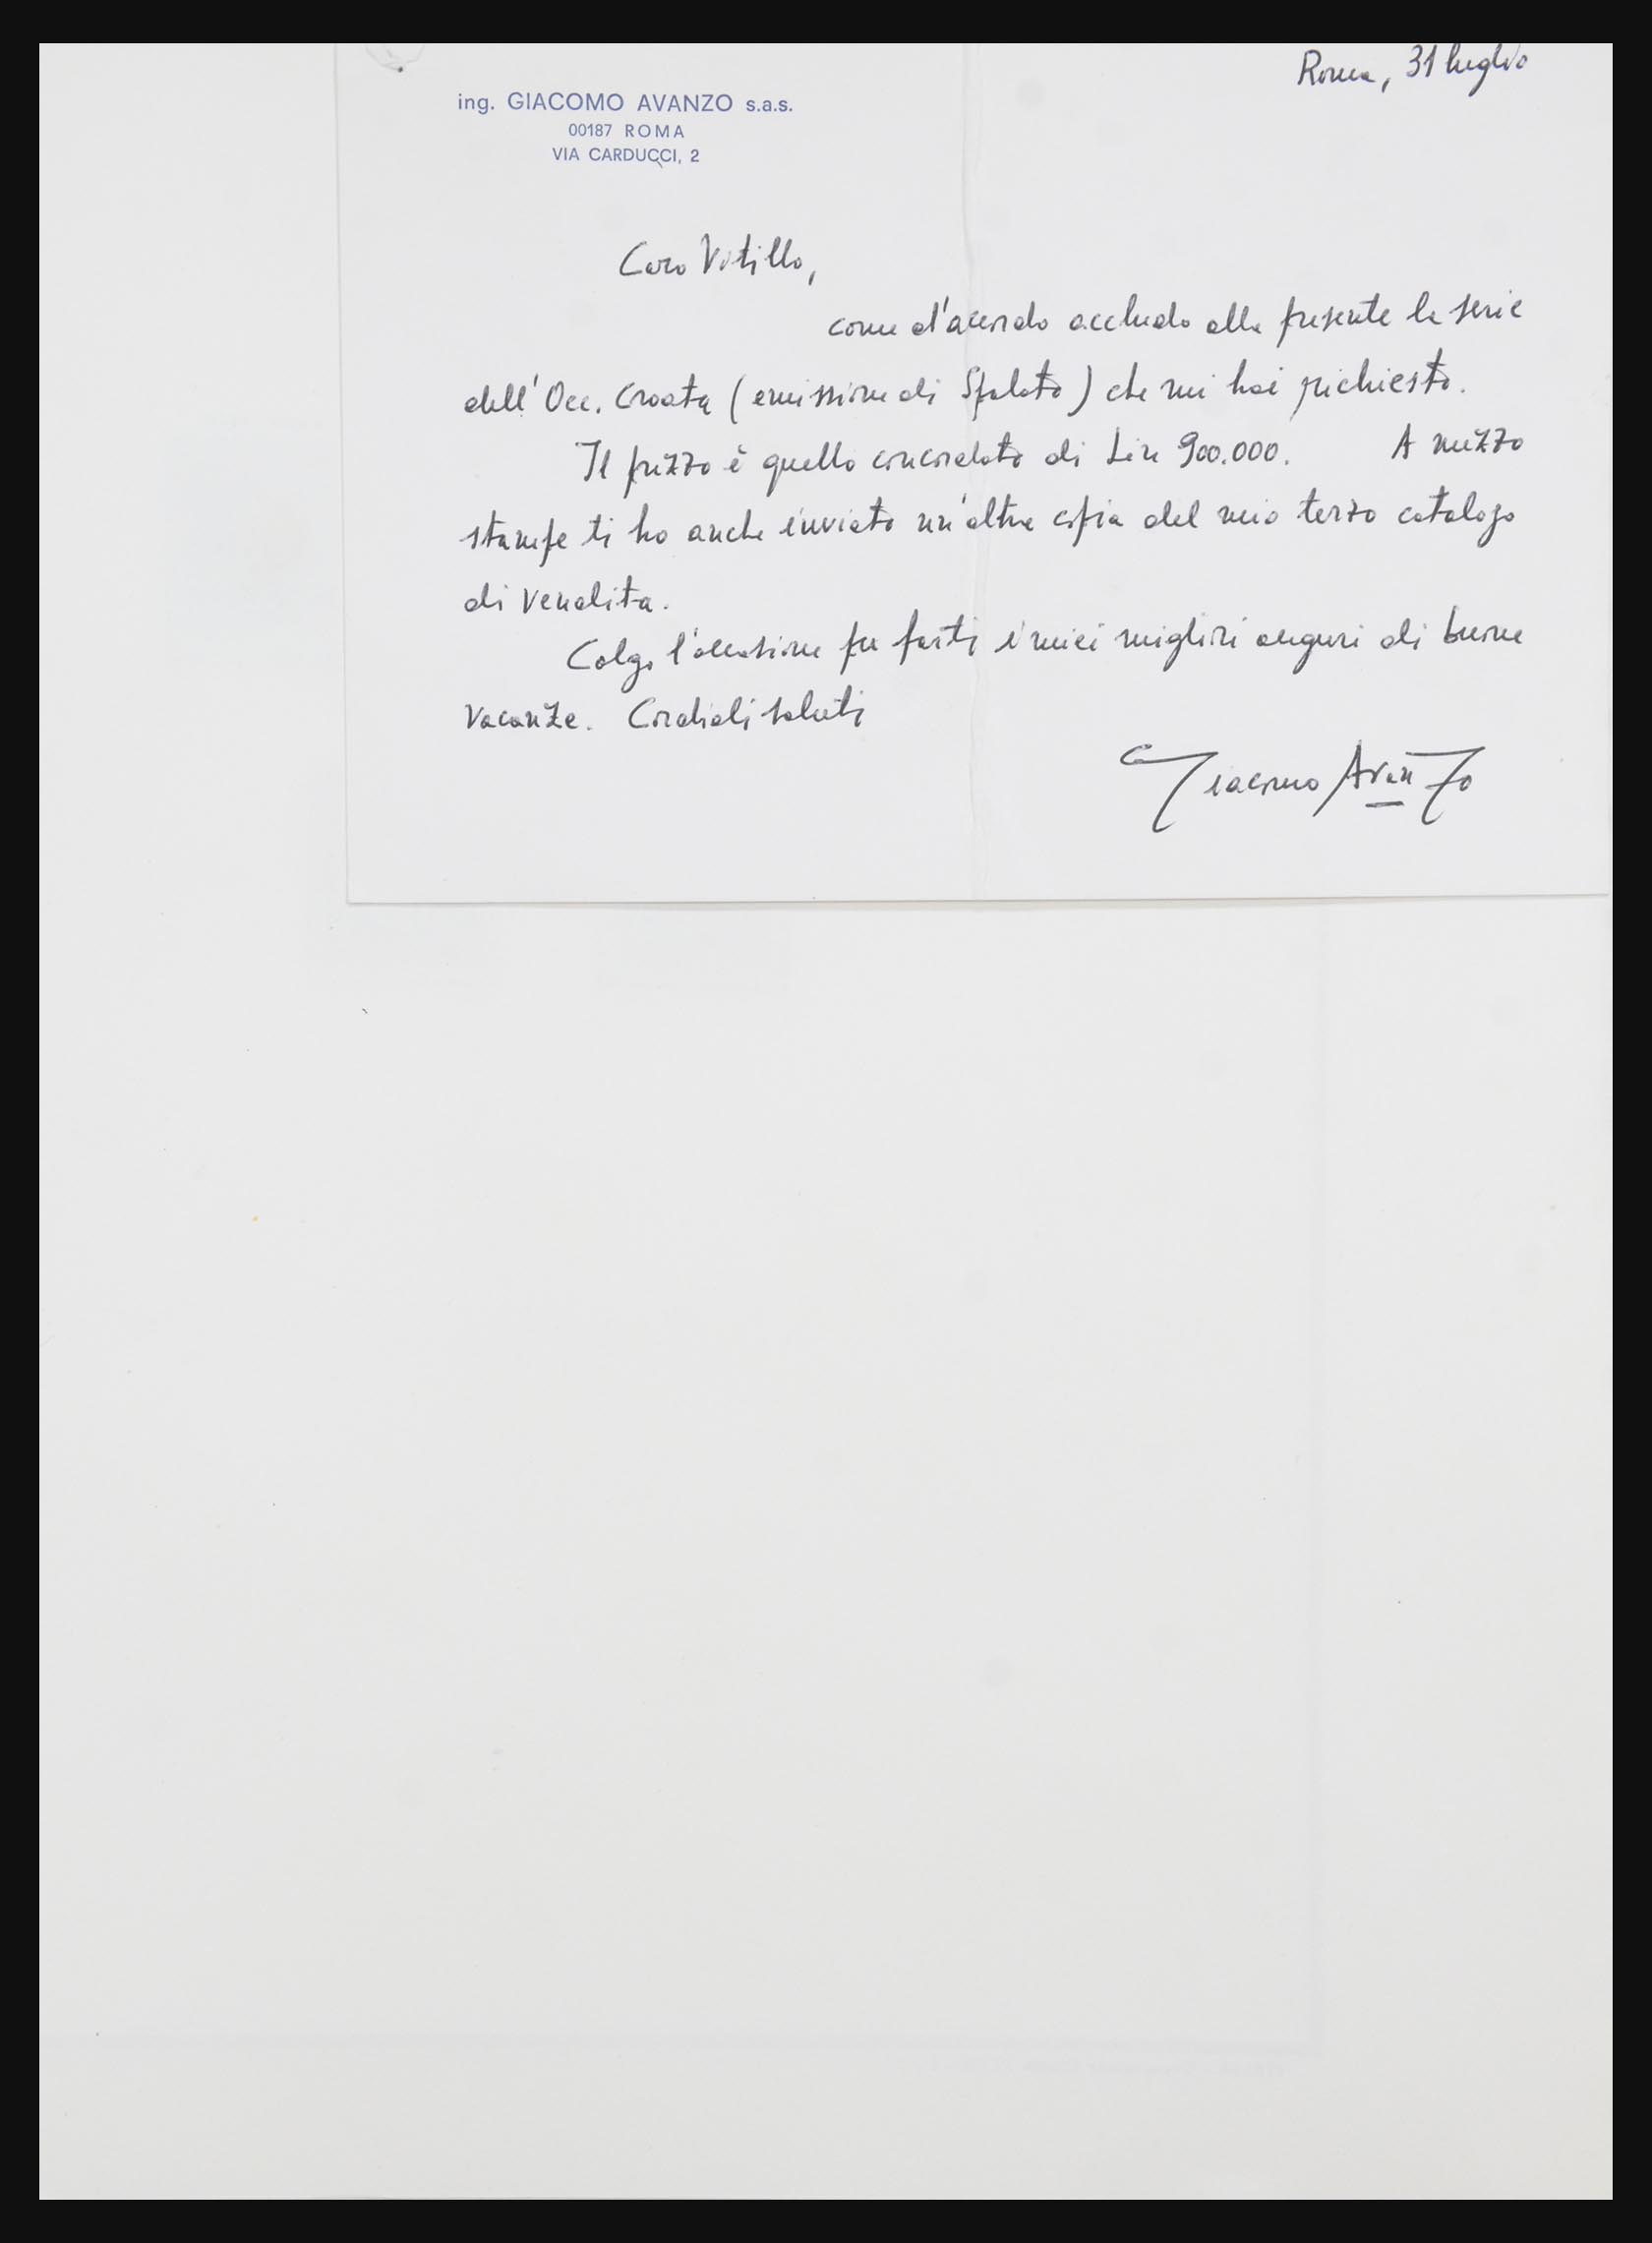 Roma, 31 luglio
ing. GIACOMO AVANZO s.a.s.
00187 ROMA
VIA CARDUCCI, 2
Caro Vitillo,
come d'accordo accludo alla presente la serie
dell'Occ. Croata (emissione di Spalato) che mi hai richiesto.
Il prezzo è quello concordato di Lire 900.000. A mezzo
stampe ti ho anche inviato un'altra copia del mio terzo catalogo
di vendita.
Colgo l'occasione per farti i miei migliori auguri di buone
vacanze. Cordiali saluti
Giacomo Avanzo